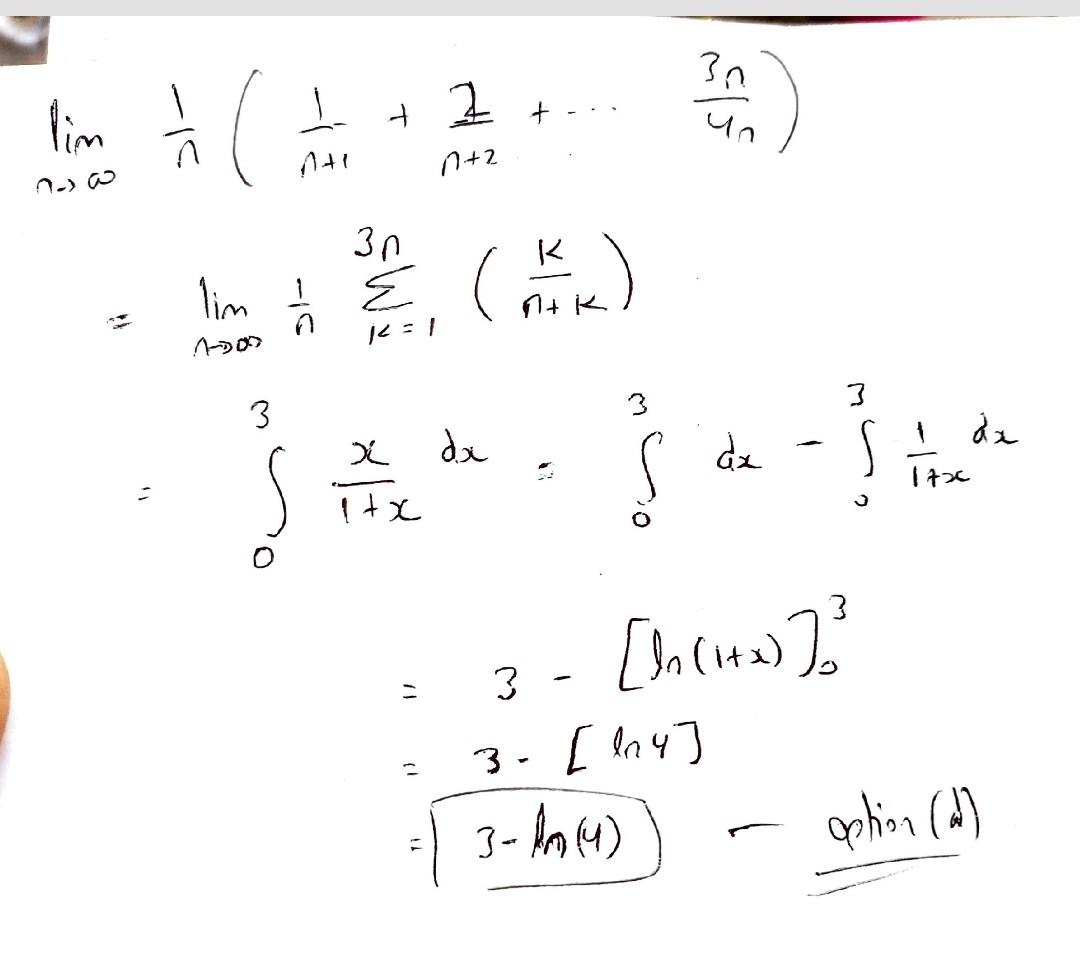 lim n→∞ 1/n ( 1/(n+1) + 2/(n+2) + ... 3n/4n )
= lim n→∞ 1/n Σ_{K=1}^{3n} ( K/(n+K) )
= ∫_0^3 x/(1+x) dx = ∫_0^3 dx - ∫_0^3 1/(1+x) dx
= 3 - [ln(1+x)]_0^3
= 3 - [ln 4]
= 3 - ln(4) — option (d)